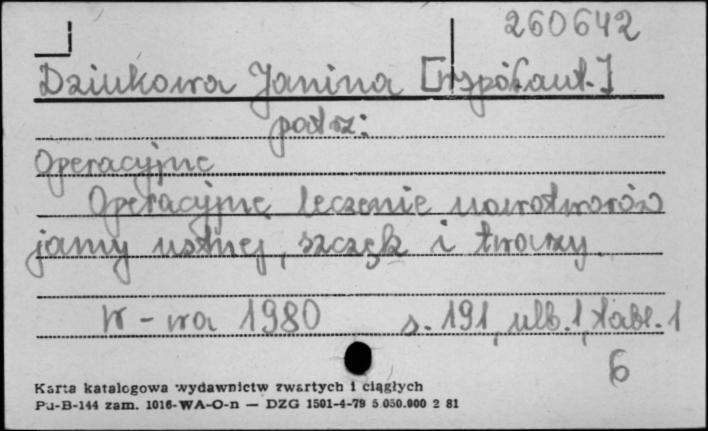 260642
Dziukowa Janina [współaut.]
patrz:
Operacyjne
Operacyjne leczenie nowotworów
jamy ustnej, szczęk i twarzy.
W-wa 1980 s. 191, ulb. 1, tabl. 1
6
Karta katalogowa wydawnictw zwartych i ciągłych
Pu-B-144 zam. 1016-WA-O-n — DZG 1501-4-79 5.050.000 2 81